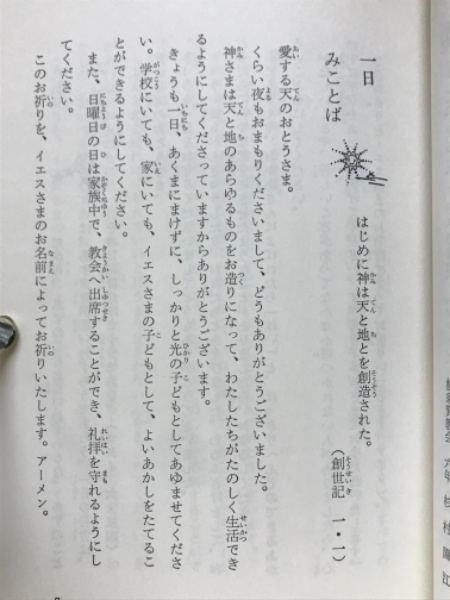 一日
みことば
はじめに神は天と地とを創造された。
（創世記　一・一）
愛する天のおとうさま。
くらい夜もおまもりくださいまして、どうもありがとうございました。
神さまは天と地のあらゆるものをお造りになって、わたしたちがたのしく生活でき
るようにしてくださっていますからありがとうございます。
きょうも一日、あくまにまけずに、しっかりと光の子どもとしてあゆませてくださ
い。学校にいても、家にいても、イエスさまの子どもとして、よいあかしをたてるこ
とができるようにしてください。
また、日曜日の日は家族中で、教会へ出席することができ、礼拝を守れるようにし
てください。
このお祈りを、イエスさまのお名前によってお祈りいたします。アーメン。